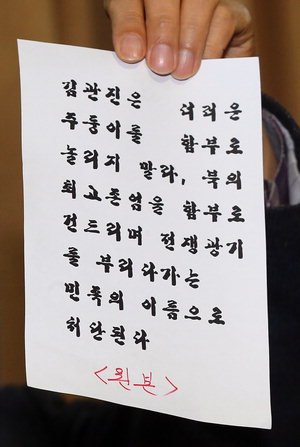 김관진은 더러운
주둥이를 함부로
놀리지 말라, 북의
최고존엄을 함부로
건드리며 전쟁광기
를 부리다가는
민족의 이름으로
처단된다
<원본>